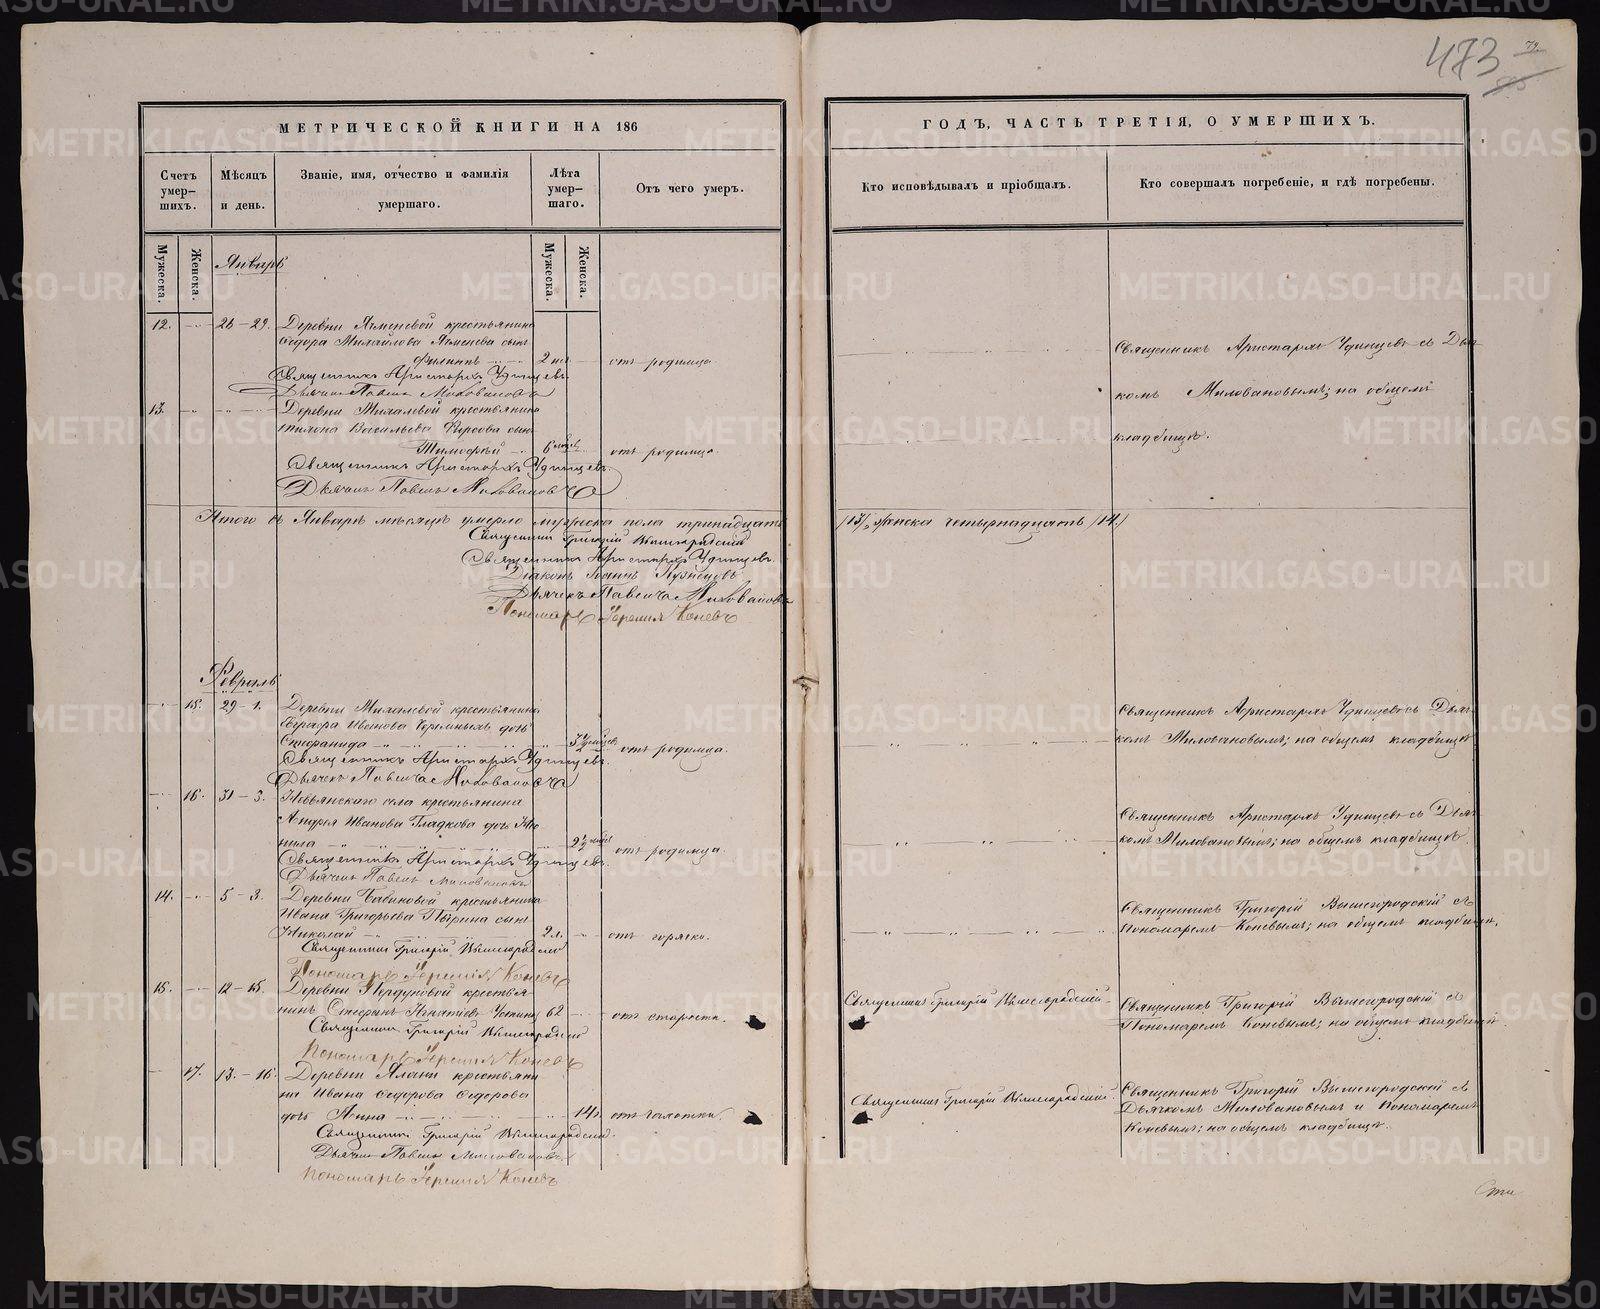 473
79.
МЕТРИЧЕСКОЙ КНИГИ НА 186
ГОДЪ, ЧАСТЬ ТРЕТІЯ, О УМЕРШИХЪ.
Счетъ умер-шихъ.
Мѣсяцъ и день.
Званіе, имя, отчество и фамилія умершаго.
Лѣта умер-шаго.
Отъ чего умеръ.
Кто исповѣдывалъ и пріобщалъ.
Кто совершалъ погребеніе, и гдѣ погребены.
Мужеска.
Женска.
Мужеска.
Женска.
Январь
12. 26-29. Деревни крестьянина
Ѳедора Михайлова сынъ
Филиппъ 2 отъ родимца
Священникъ Аристархъ Удинцевъ
Дьячекъ Павелъ Миловановъ
Священникъ Аристархъ Удинцевъ съ Дьяч-
комъ Миловановымъ; на общемъ
кладбищѣ.
13. Деревни крестьянина
Васильева сынъ
Тимофей 6 отъ родимца.
Священникъ Аристархъ Удинцевъ.
Дьячекъ Павелъ Миловановъ
Итого въ Январѣ мѣсяцѣ умерло мужеска пола тринадцать
/13/, женска четырнадцать /14./
Священникъ Григорій Вышегородскій
Священникъ Аристархъ Удинцевъ.
Діаконъ Іоаннъ
Дьячекъ Павелъ Миловановъ
Пономарь Іеремія Коневъ
Февраль
15. 29-1. Деревни крестьянина
Иванова дочь
Епифанида отъ родимца.
Священникъ Аристархъ Удинцевъ.
Дьячекъ Павелъ Миловановъ
Священникъ Аристархъ Удинцевъ съ Дьяч-
комъ Миловановымъ; на общемъ кладбищѣ
16. 31-3. Невьянскаго села крестьянина
Андрея Иванова Гладкова дочь Не-
нила отъ родимца.
Священникъ Аристархъ Удинцевъ.
Дьячекъ Павелъ Миловановъ
Священникъ Аристархъ Удинцевъ съ Дьяч-
комъ Миловановымъ; на общемъ кладбищѣ.
14. 5-3. Деревни Бабиновой крестьянина
Ивана Григорьева сынъ
Николай 2 л. отъ горячки.
Священникъ Григорій Вышегородскій
Пономарь Іеремія Коневъ
Священникъ Григорій Вышегородскій съ
Пономаремъ Коневымъ; на общемъ кладбищѣ.
15. 12-15. Деревни крестья-
нинъ Стефанъ Игнатіевъ 62 отъ старости.
Священникъ Григорій Вышегородскій
Пономарь Іеремія Коневъ
Священникъ Григорій Вышегородскій.
Священникъ Григорій Вышегородскій съ
Пономаремъ Коневымъ; на общемъ кладбищѣ.
17. 13.-16. Деревни крестьяни-
на Ивана Ѳедорова Ѳедорова
дочь Анна 14 отъ чахотки.
Священникъ Григорій Вышегородскій.
Дьячекъ Павелъ Миловановъ.
Пономарь Іеремія Коневъ
Священникъ Григорій Вышегородскій.
Священникъ Григорій Вышегородскій съ
Дьячкомъ Миловановымъ и Пономаремъ
Коневымъ; на общемъ кладбищѣ.
METRIKI.GASO-URAL.RU